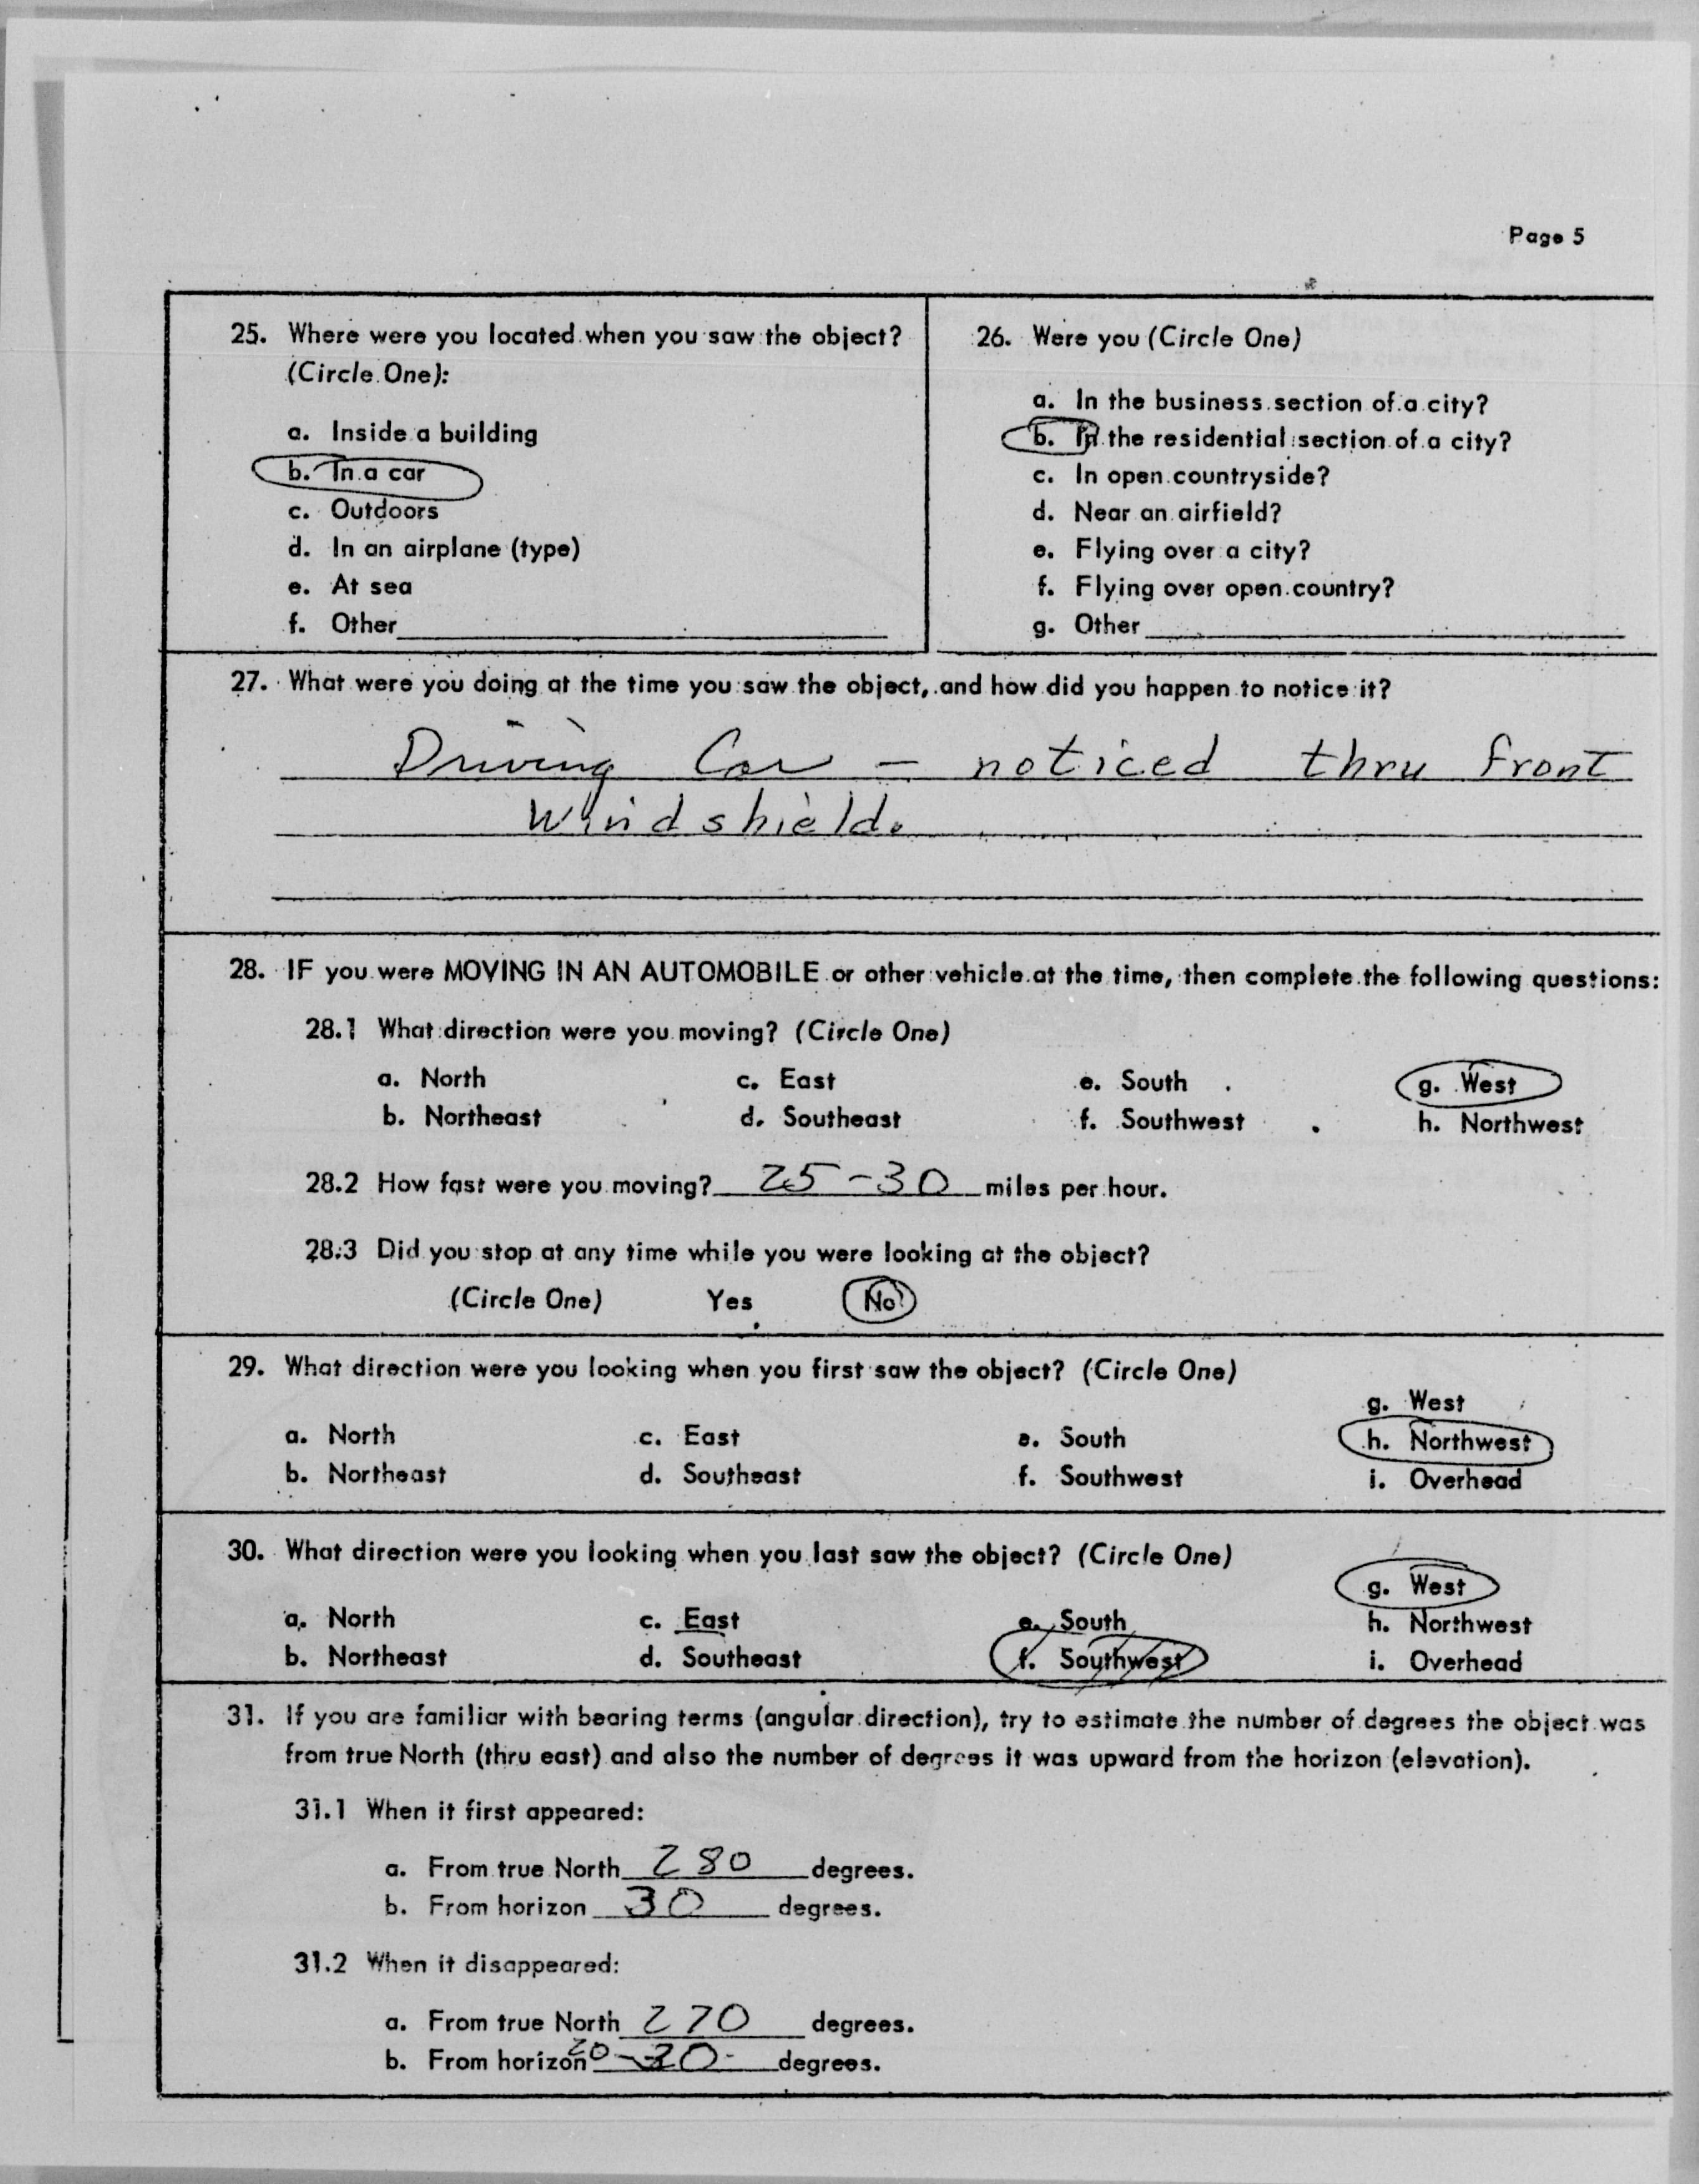 Page 5
25. Where were you located when you saw the object?
(Circle One):
a. Inside a building
b. In a car
c. Outdoors
d. In an airplane (type)
e. At sea
f. Other
26. Were you (Circle One)
a. In the business section of a city?
b. In the residential section of a city?
c. In open countryside?
d. Near an airfield?
e. Flying over a city?
f. Flying over open country?
g. Other
27. What were you doing at the time you saw the object, and how did you happen to notice it?
Driving Car - noticed thru front
windshield.
28. IF you were MOVING IN AN AUTOMOBILE or other vehicle at the time, then complete the following questions:
28.1 What direction were you moving? (Circle One)
a. North c. East e. South g. West
b. Northeast d. Southeast f. Southwest h. Northwest
28.2 How fast were you moving? 25-30 miles per hour.
28.3 Did you stop at any time while you were looking at the object?
(Circle One) Yes No
29. What direction were you looking when you first saw the object? (Circle One)
g. West
a. North c. East e. South h. Northwest
b. Northeast d. Southeast f. Southwest i. Overhead
30. What direction were you looking when you last saw the object? (Circle One)
g. West
a. North c. East e. South h. Northwest
b. Northeast d. Southeast f. Southwest i. Overhead
31. If you are familiar with bearing terms (angular direction), try to estimate the number of degrees the object was
from true North (thru east) and also the number of degrees it was upward from the horizon (elevation).
31.1 When it first appeared:
a. From true North 280 degrees.
b. From horizon 30 degrees.
31.2 When it disappeared:
a. From true North 270 degrees.
b. From horizon 20-30 degrees.